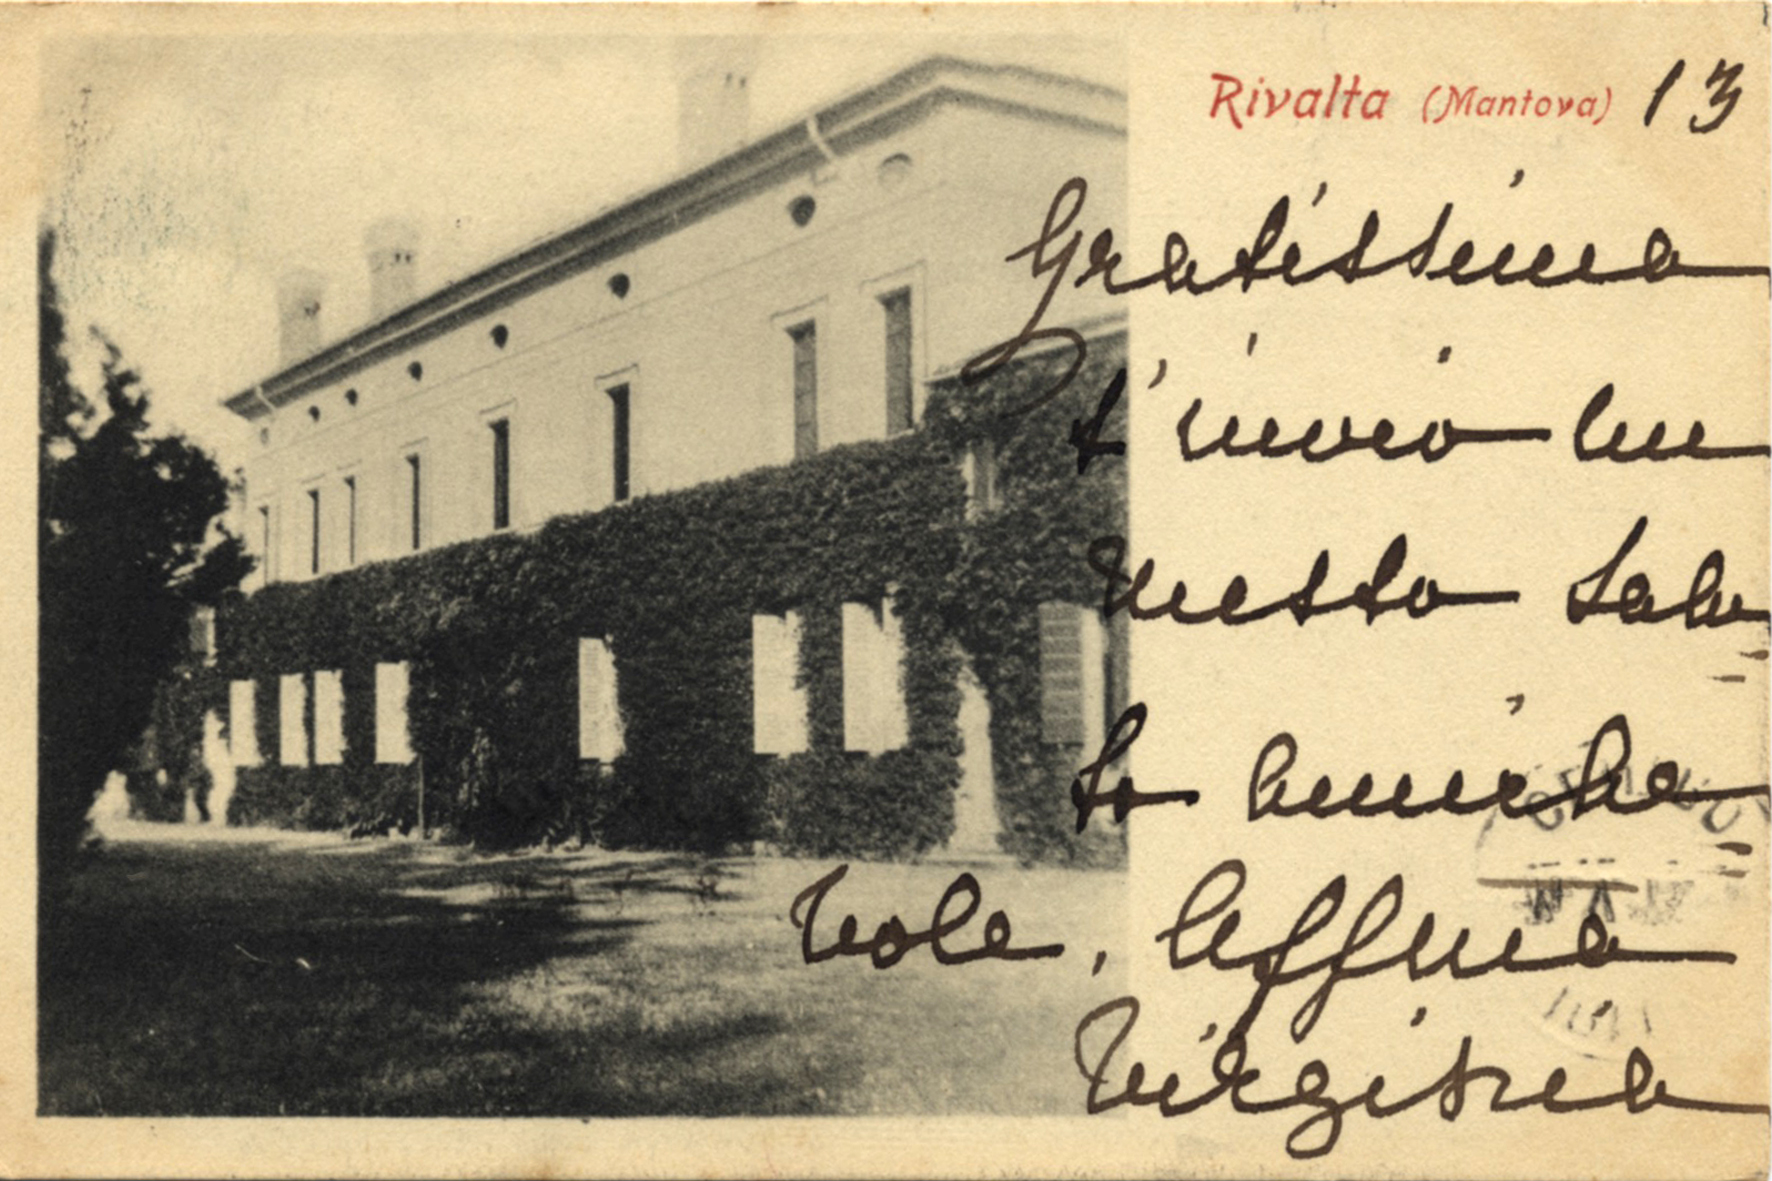 Rivalta (Mantova) 13
Gratissima
t'invio un
mesto salu
to amiche
vole, Affma
Virginia